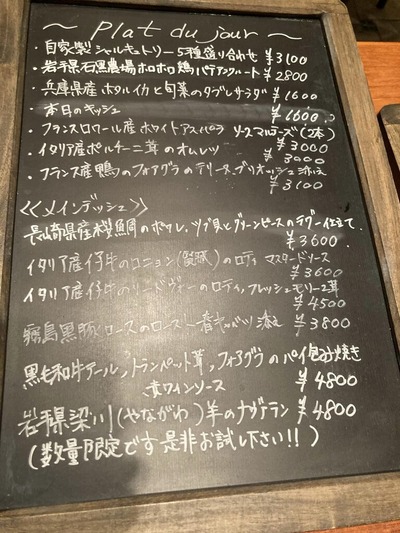 〜 Plat du jour 〜
・自家製シャルキュトリー5種盛り合わせ ¥3100
・岩手県石黒農場ホロホロ鶏パテアンクルート ¥2800
・兵庫県産ホタルイカと旬菜のタブレサラダ ¥1600
・本日のキッシュ ¥1600
・フランスロワール産ホワイトアスパラ ソースマルテーズ(2本) ¥3000
・イタリア産ポルチーニ茸のオムレツ ¥3000
・フランス産鴨のフォアグラのテリーヌ、ブリオッシュ添え ¥3100
<<メインディッシュ>>
長崎県産桜鯛のポワレ、ツブ貝とグリーンピースのラグー仕立て
¥3600
イタリア産仔牛のロニョン(腎臓)のロティ マスタードソース
¥3600
イタリア産仔牛のリードヴォーのロティ、フレッシュモリーユ茸
¥4500
霧島黒豚ロースのロースト 春キャベツ添え ¥3800
黒毛和牛テール、トランペット茸、フォアグラのパイ包み焼き
赤ワインソース ¥4800
岩手県梁川(やながわ)羊のナヴァラン ¥4800
(数量限定です是非お試し下さい!!)